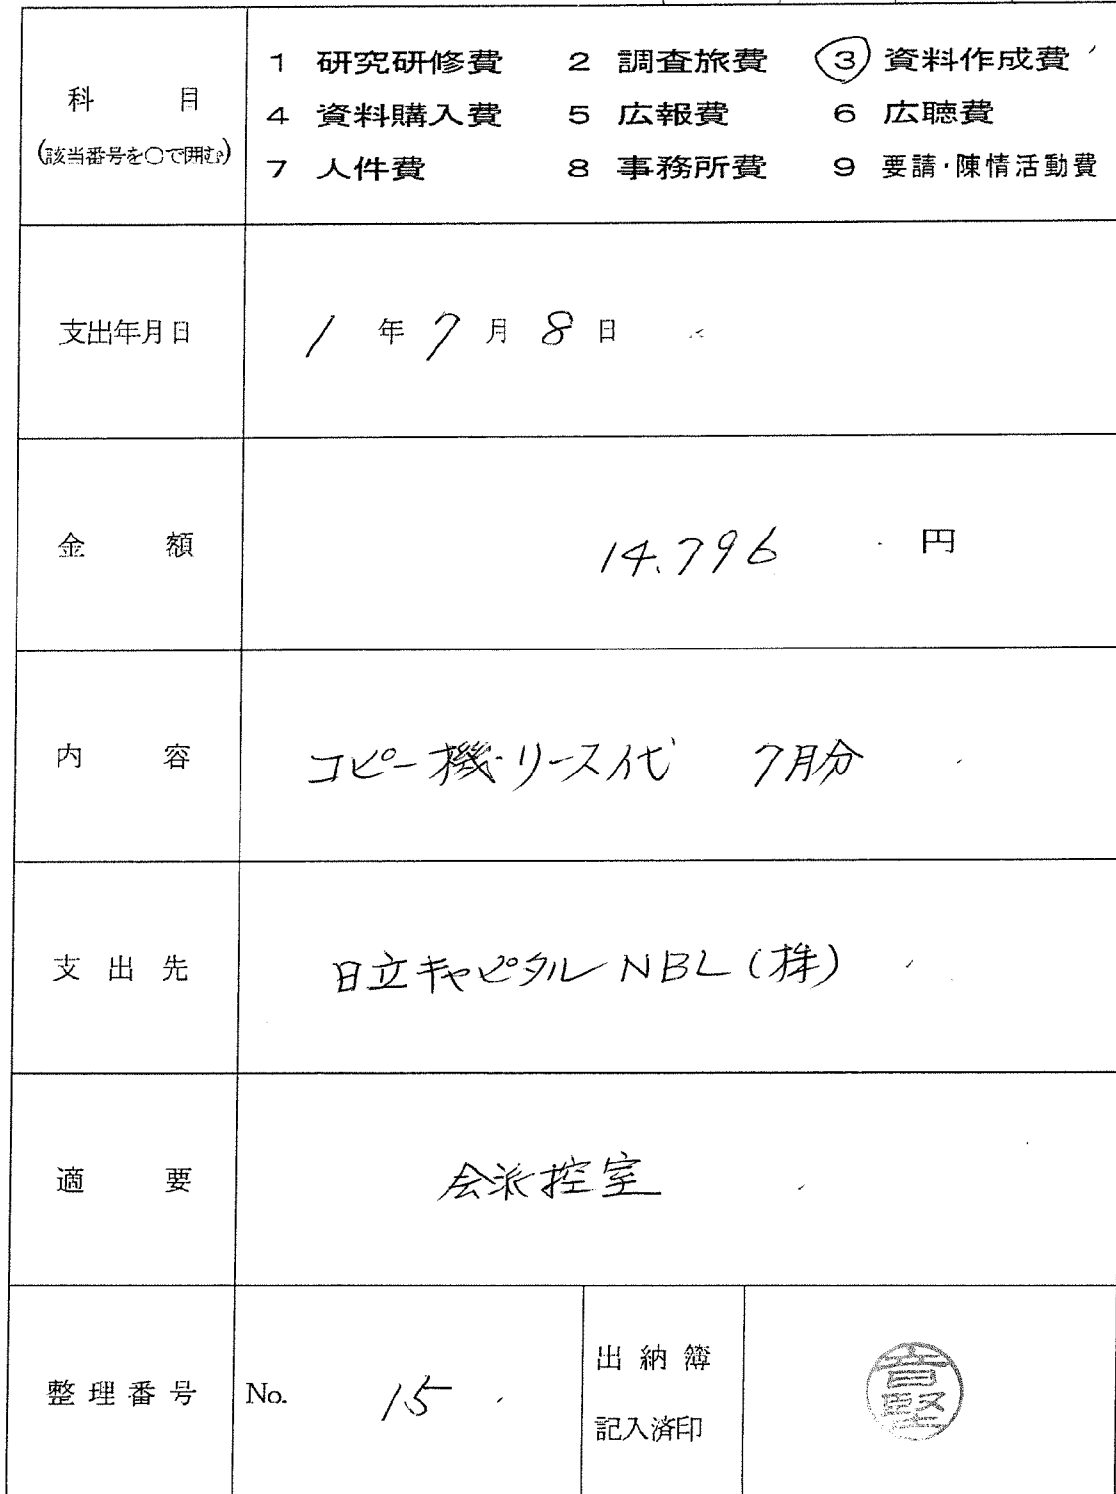 科 目
(該当番号を○で囲む)
1 研究研修費 2 調査旅費 3 資料作成費
4 資料購入費 5 広報費 6 広聴費
7 人件費 8 事務所費 9 要請・陳情活動費
支出年月日 1年7月8日
金 額 14.796 円
内 容 コピー機リース代 7月分
支 出 先 日立キャピタルNBL(株)
適 要 会派控室
整理番号 No. 15
出納簿
記入済印